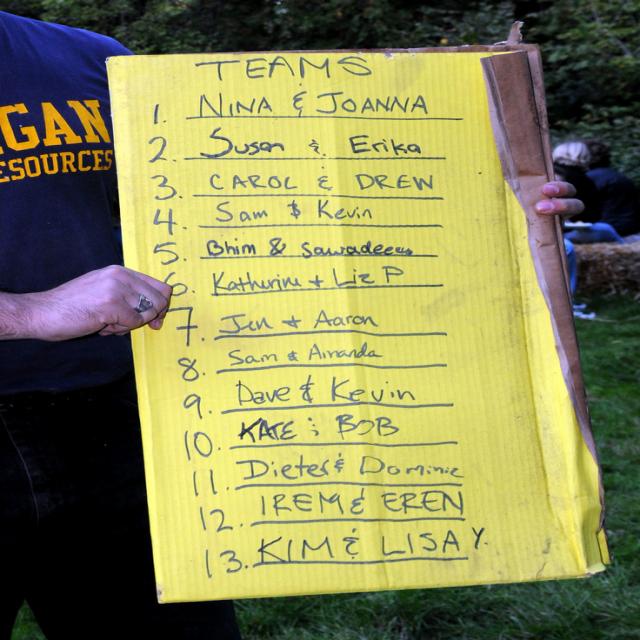 GAN
ESOURCES
TEAMS
1. NINA & JOANNA
2. Susan & Erika
3. CAROL & DREW
4. Sam & Kevin
5. Bhim &
6. Katherine + Liz P
7. Jen + Aaron
8. Sam & Amanda
9. Dave & Kevin
10. KATE & BOB
11. Dieter & Dominic
12. IREM & EREN
13. KIM & LISA Y.